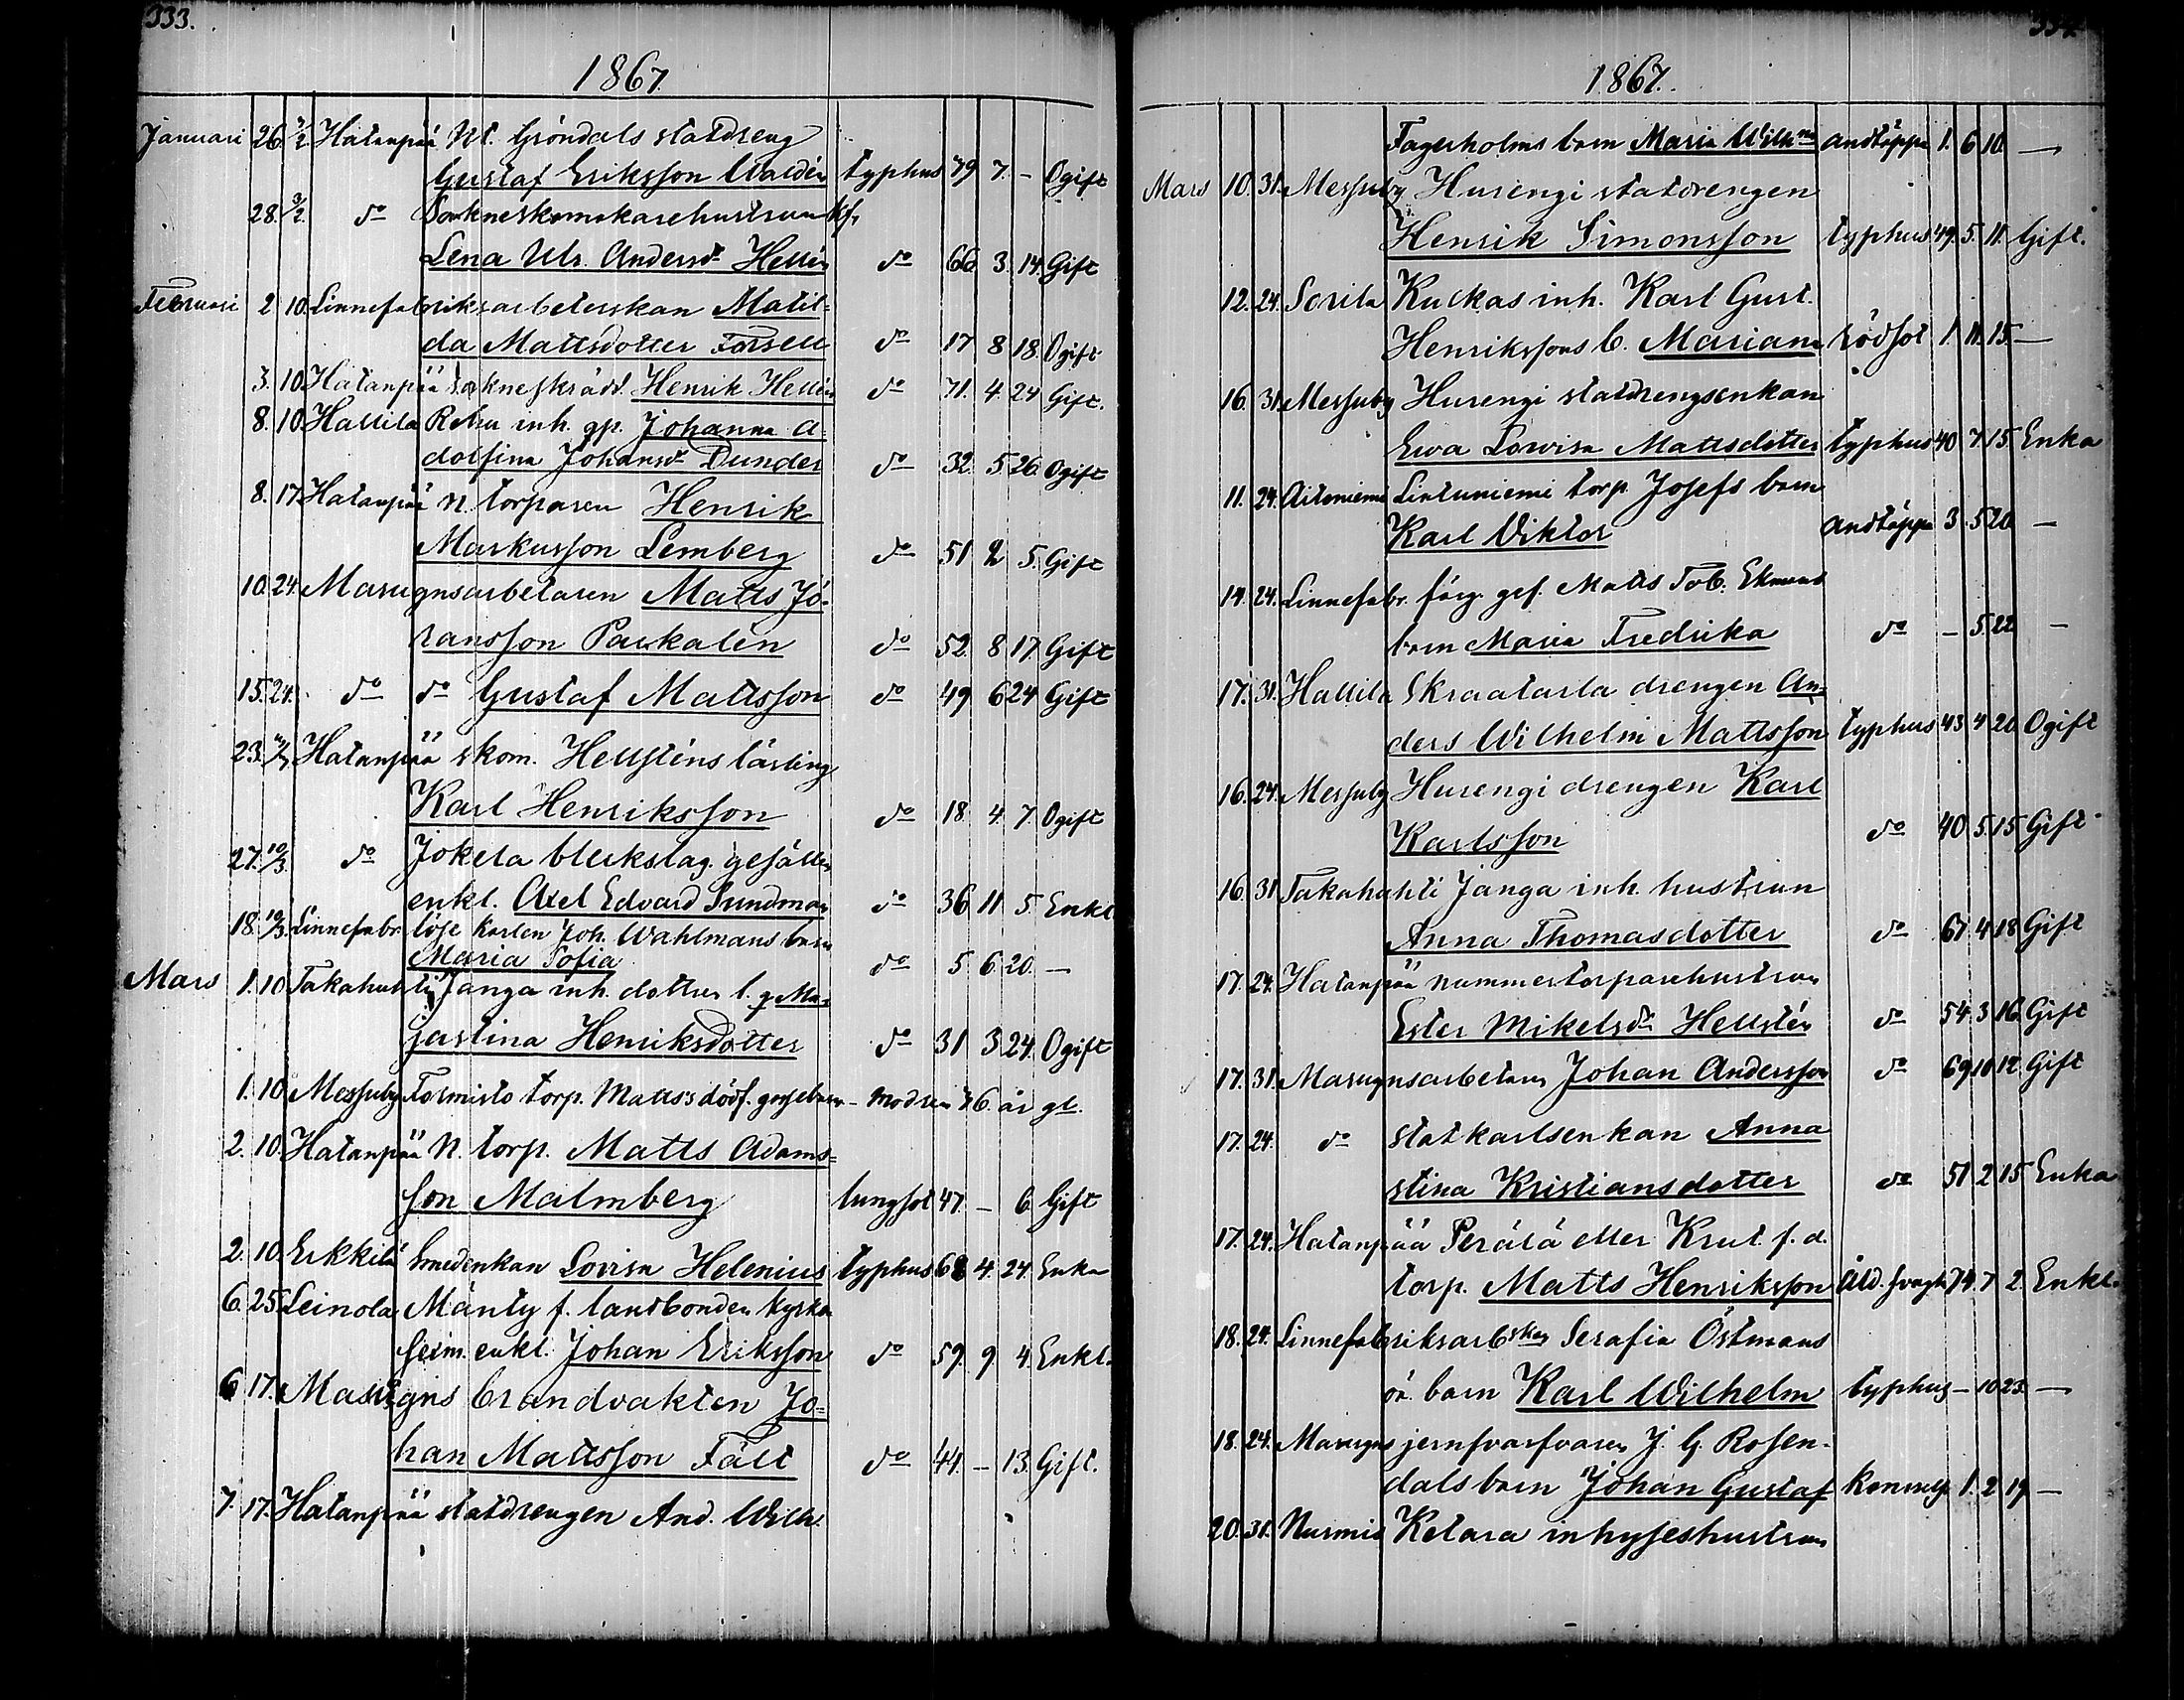 333.
1867.
Januari 26. 3/2. Hatanpää Nt. Gröndals statdreng
Gustaf Eriksson Waldén typhus 79 7. - Ogift
28. 3/2. do Sockneskomakarehustrun
Lena Ulr. Andersdr Hellén do 66 3. 14. Gift
Februari 2 10. Linnefabriksarbeterskan Matil-
da Mattsdotter Forsell do 17 8 18. Ogift
3. 10. Hatanpää sockneskrädd. Henrik Hellén do 71. 4. 24 Gift.
8. 10. Hallila Rehu inh. gp. Johanna A-
dolfina Johansdr Dunder do 32. 5 26. Ogift
8. 17. Hatanpää N. torparen Henrik
Markusson Lemberg do 51 2 5. Gift
10. 24. Masugnsarbetaren Matts Jö-
ransson Packalén do 52. 8 17. Gift
15. 24. do do Gustaf Mattsson do 49 6 24 Gift
23. Hatanpää skom. Hellsténs lärling
Karl Henriksson do 18. 4. 7. Ogift
27. 10/3. do Jokela bleckslag. gesällen
enkl. Axel Edvard Sundman do 36 11 5. Enkl.
18. 10/3. Linnefabr. löse karlen Joh. Wahlmans barn
Maria Sofia do 5. 6. 20. —
Mars 1. 10. Takahuhti Janga inh. dotter b. q. Ma-
jastina Henriksdotter do 31 3. 24. Ogift
1. 10. Messuby Tormisto torp. Matts's dödf. gossebarn - modren 36. år gl.
2. 10. Hatanpää N. torp. Matts Adams-
son Malmberg lungsot 47. - 6. Gift
2. 10. Erkkilä Smedenkan Lovisa Helenius typhus 68 4. 24. Enka
6. 25. Leinola Mänty f. landbonden kyrko
seim. enkl. Johan Eriksson do 59. 9. 4. Enkl.
6. 17. Masugns brandvakten Jo-
han Mattsson Fält do 44. - 13. Gift.
7. 17. Hatanpää statdrengen And. Wilh.
334.
1867.
Fagerholms barn Maria Wilhna Andtäppa 1. 6 10. —
Mars 10. 31. Messuby Hurengi statdrengen
Henrik Simonsson typhus 49. 5. 11. Gift.
12. 24. Sorila Kuckas inh. Karl Gust.
Henrikssons b. Mariana rödsot 1. 11. 15. —
16. 31. Messuby Hurengi statdrengsenkan
Ewa Lowisa Mattsdotter typhus 40 7. 15. Enka
11. 24. Aitoniemi Lintuniemi torp. Josefs barn
Karl Viktor Andtäppa 3. 5 20. —
14. 24. Linnefabr. färg. ges. Matts Tob. Ekmans
barn Maria Fredrika do - 5. 22 —
17. 31. Hallila Skraatarla drengen An-
ders Wilhelm Mattsson typhus 43 4 20. Ogift
16. 24. Messuby Hurengi drengen Karl
Karlsson do 40 5. 15 Gift
16. 31 Takahuhti Janga inh. hustrun
Anna Thomasdotter do 67. 4 18 Gift
17. 24. Hatanpää nummertorparehustrun
Ester Mikelsdr Hellstén do 54. 3 16. Gift
17. 31. Masugnsarbetaren Johan Andersson do 69 10 12. Gift
17. 24. do statkarlsenkan Anna
stina Kristiansdotter do 51 2 15 Enka
17. 24. Hatanpää Perälä eller Krut f. d.
torp. Matts Henriksson Åld. svagh. 74. 7 2. Enkl.
18. 24. Linnefabriksarbskan Serafia Östmans
oä. barn Karl Wilhelm typhus - 10 23. —
18. 24. Masugns jernsvarfvaren J. G. Rosen-
dals barn Johan Gustaf 1. 2 19 —
20. 31. Nurmis Ketara inhyseshustrun